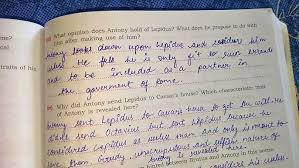 What opinion does Antony hold of Lepidus? What does he propose to do with
him after making use of him?
Antony looks down upon Lepidus and consider him
He felt he is only fit to run errands
and to be included as a partner in
the government of Rome.
Why did Antony send Lepidus to Caesar's house? Which characteristic trait
of Antony is revealed here?
Antony sent Lepidus to Caesar's house to get the will. He
Octavius but sent Lepidus because he
considered Lepidus as useless man and only is meant to
run errands. Greedy, unscrupulous and selfish nature of
Antony is revealed here.
traits of his
and Antony in this scene